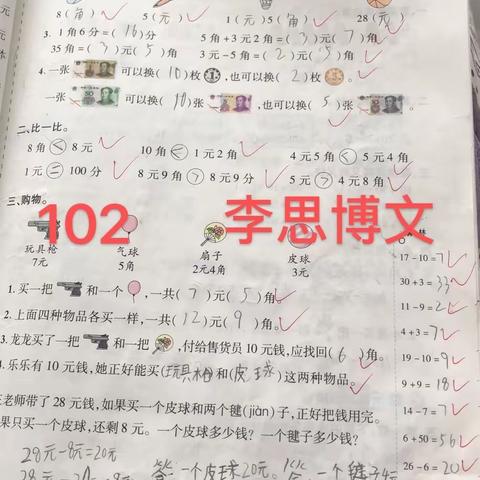 8(角) 5(元) 1(元)5(角) 28(元)
3. 1角6分=(16)分 5角+3元2角=(3)元(7)角
35角=(3)元(5)角 3元-5角=(2)元(5)角
4. 一张 可以换(10)枚 ,也可以换(2)枚 。
一张 可以换(10)张 ,也可以换(5)张 。
二、比一比。
8角<8元 10角<1元2角 4元5角<5元4角
1元=100分 8元9角>8元9分 5元>4元8角
三、购物。
102 李思博文
玩具枪 气球 扇子 皮球
7元 5角 2元4角 3元
1. 买一把 和一个 ,一共(7)元(5)角。
2. 上面四种物品各买一样,一共(12)元(9)角。
3. 龙龙买了一把 和一把 ,付给售货员10元钱,应找回(6)角。
4. 乐乐有10元钱,她正好能买(玩具枪)和(皮球)这两种物品。
王老师带了28元钱,如果买一个皮球和两个毽(jiàn)子,正好把钱用完。
如果只买一个皮球,还剩8元。一个皮球多少钱?一个毽子多少钱?
28元-8元=20元
答:一个皮球20元。 答:一个毽子4元
17-10=7
30+3=33
11-9=2
4+3=7
19-10=9
9+9=18
14-7=7
6+50=56
26-6=20